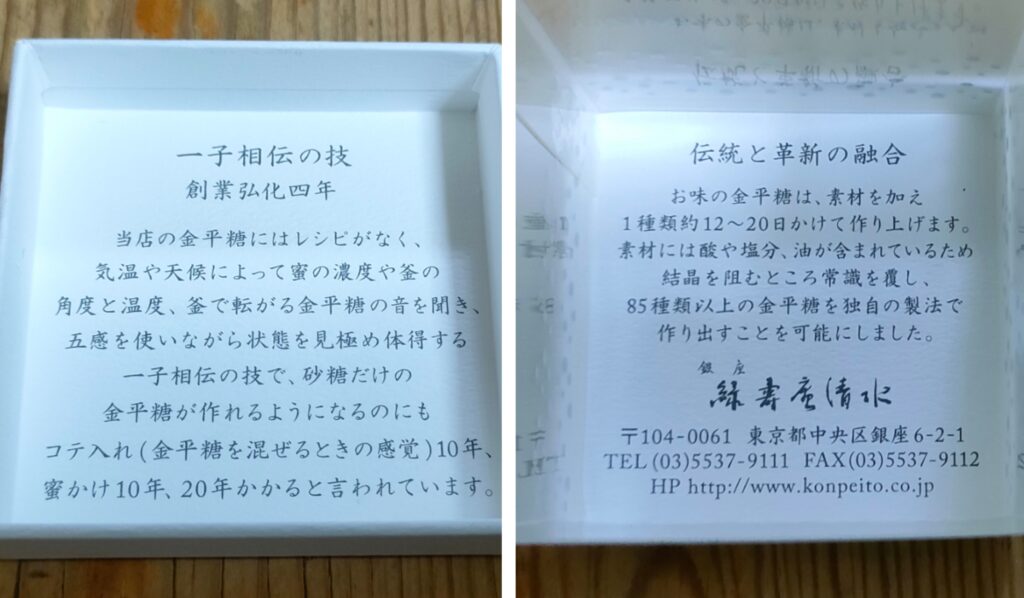 一子相伝の技
創業弘化四年
当店の金平糖にはレシピがなく、
気温や天候によって蜜の濃度や釜の
角度と温度、釜で転がる金平糖の音を聞き、
五感を使いながら状態を見極め体得する
一子相伝の技で、砂糖だけの
金平糖が作れるようになるのにも
コテ入れ(金平糖を混ぜるときの感覚)10年、
蜜かけ10年、20年かかると言われています。
伝統と革新の融合
お味の金平糖は、素材を加え
1種類約12～20日かけて作り上げます。
素材には酸や塩分、油が含まれているため
結晶を阻むところ常識を覆し、
85種類以上の金平糖を独自の製法で
作り出すことを可能にしました。
銀座
緑寿庵清水
〒104-0061 東京都中央区銀座6-2-1
TEL(03)5537-9111 FAX(03)5537-9112
HP http://www.konpeito.co.jp